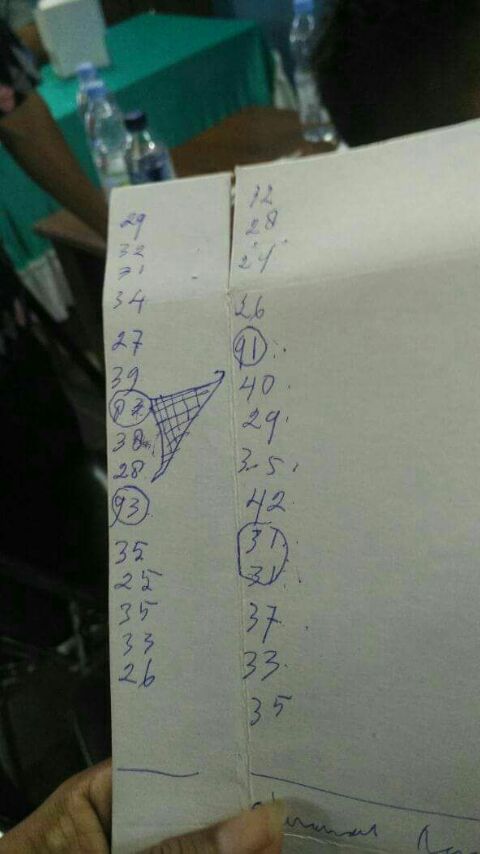 29
32
31
34
27
39
38
28
93
35
25
35
33
26
32
28
29
36
91
40
29
35
42
31
31
37
33
35